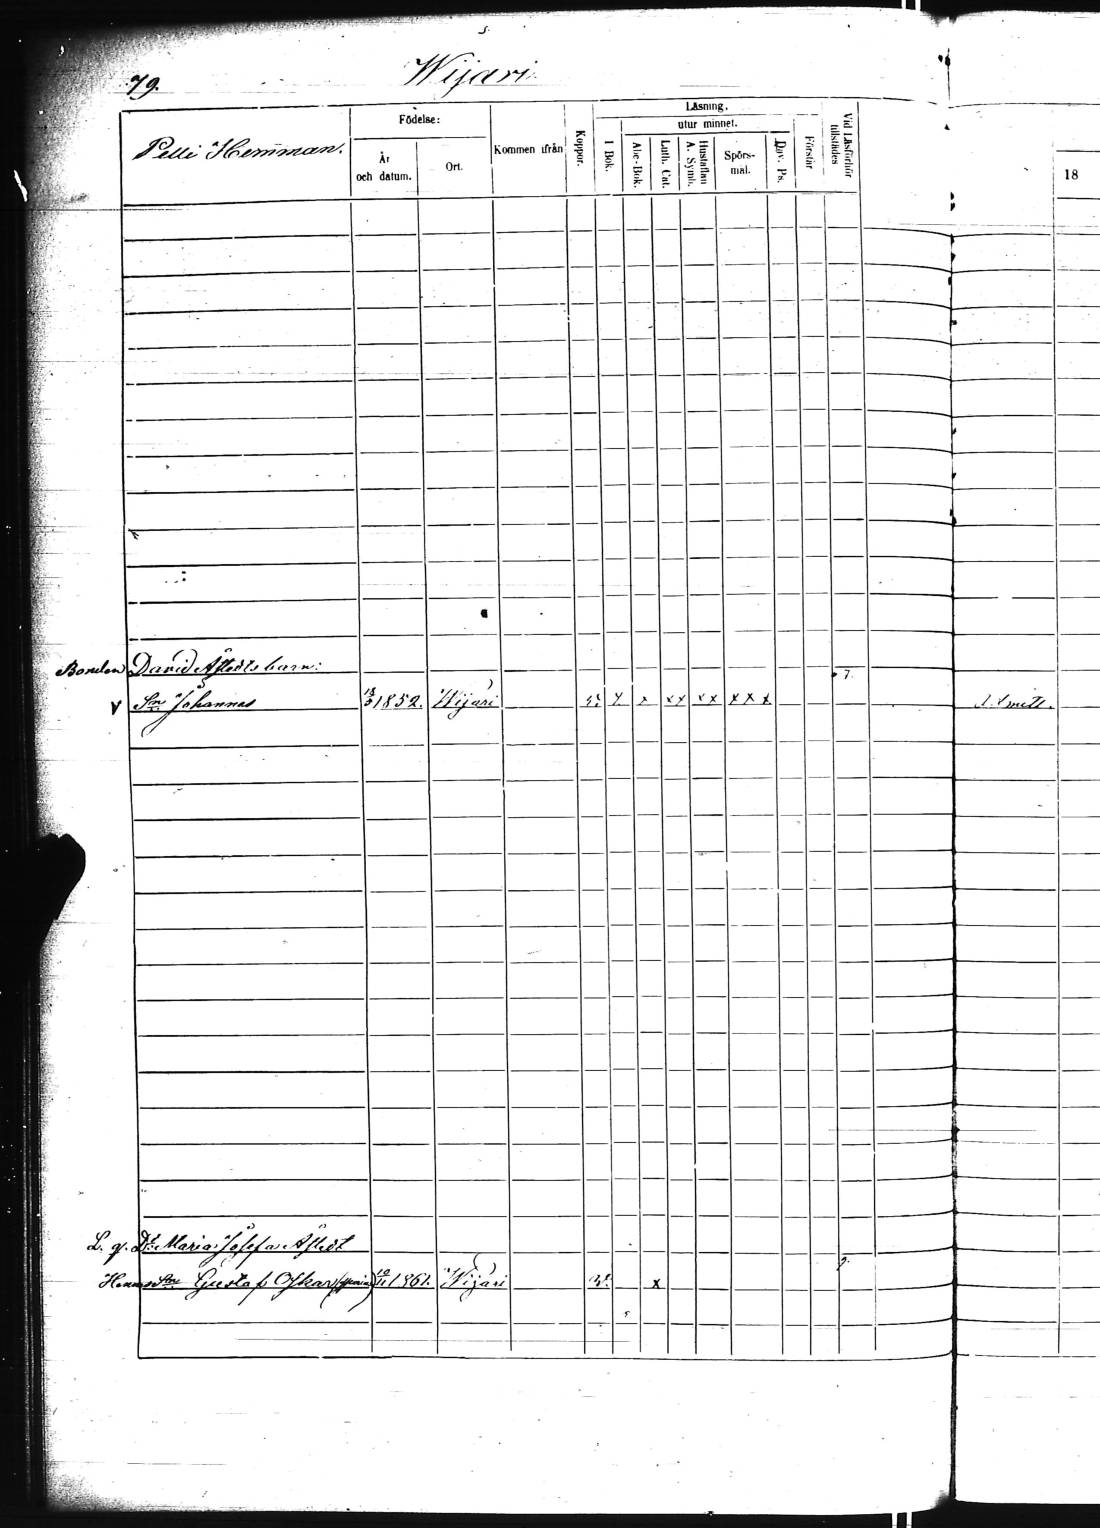 79.
Wijari
Pelli Hemman.
Födelse:
År och datum.
Ort.
Kommen ifrån
Koppor.
Läsning.
I Bok.
utur minnet.
Abc-Bok.
Luth. Cat.
Hustaflan A. Symb.
Spörs-mal.
Dav. Ps.
Förstår
Vid Läsförhör tillstädes
18
Bonden David Åstedts barn: 7.
V Sn Johannes 1852. Wijari x x x x x x x x x
L. g. Dr. Maria Josefa Åstedt
Hennes Sn Gustaf Oskar 1861. Wijari x